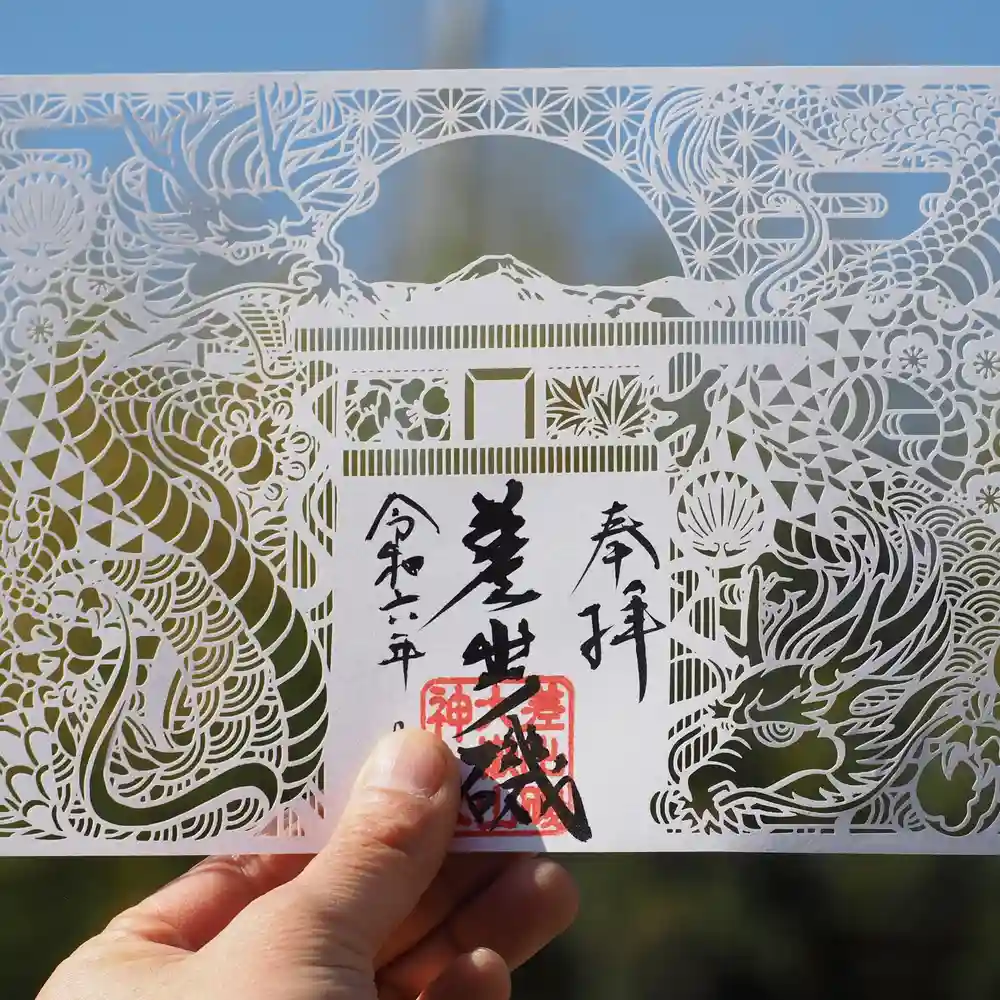 奉拝
差出磯
令和六年